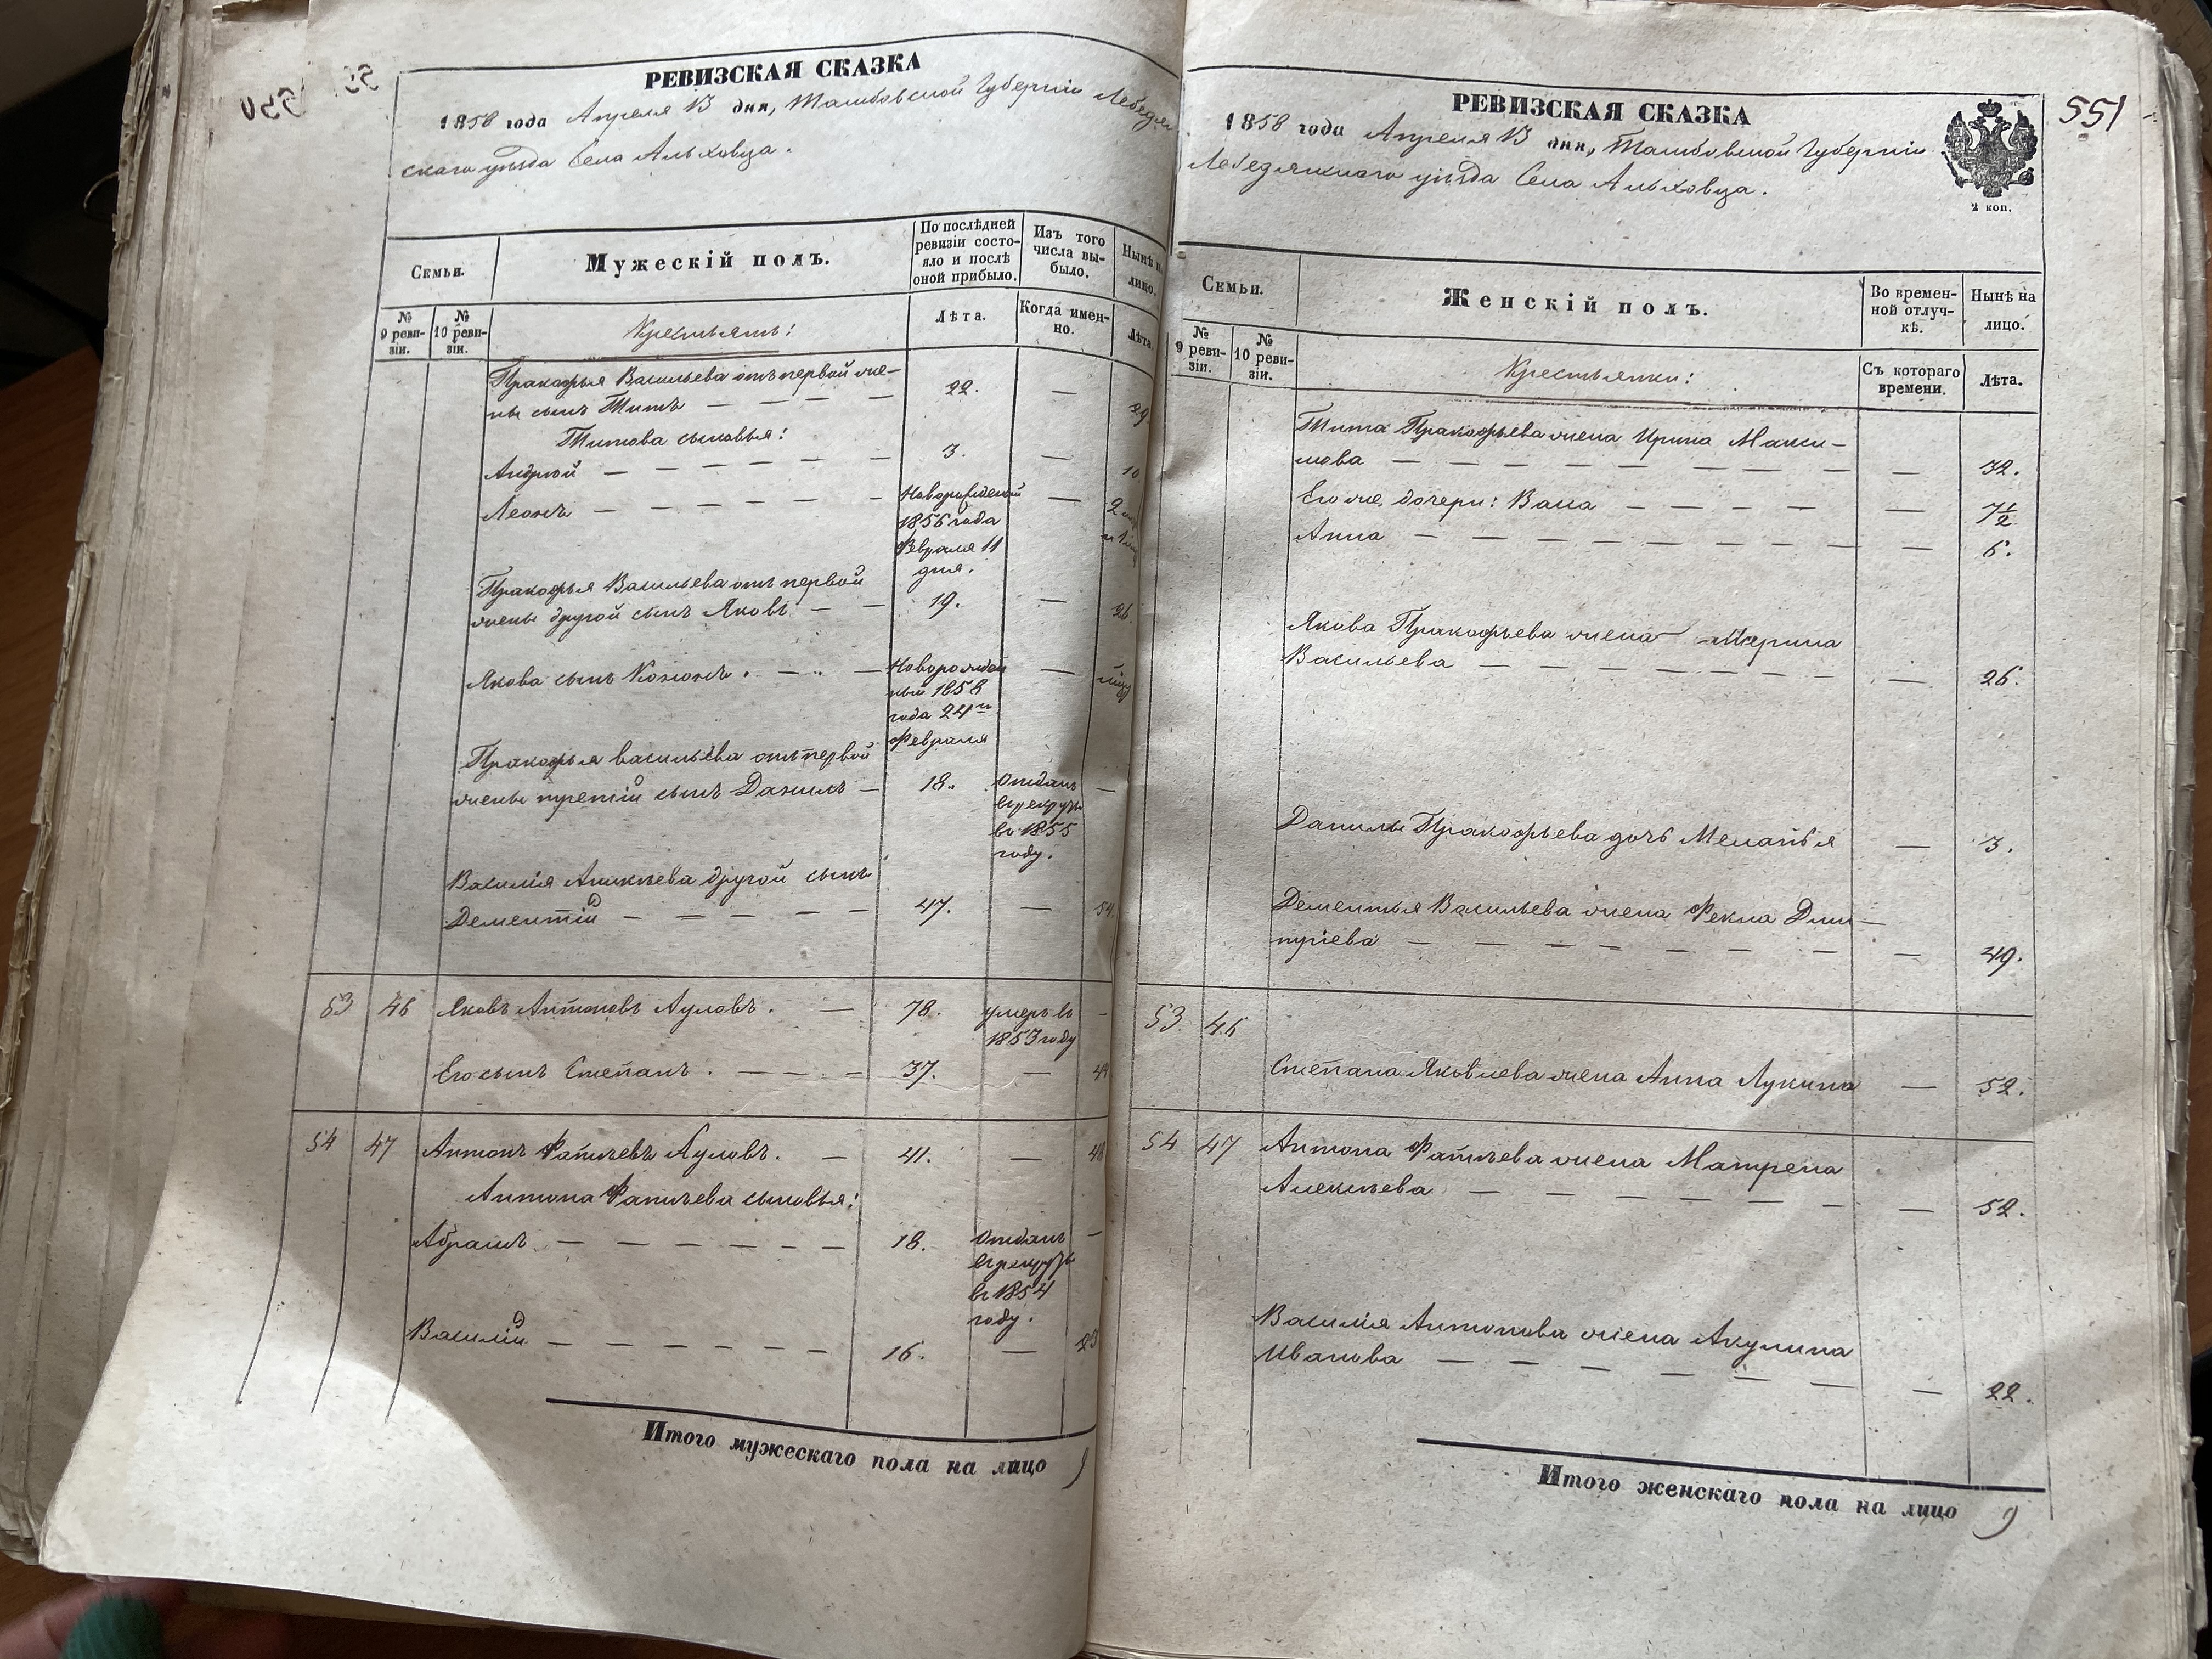 РЕВИЗСКАЯ СКАЗКА
1858 года Апреля 13 дня, Тамбовской Губерніи Лебедян
скаго уѣзда Села Альховца.
Семьи.
Мужескій полъ.
По послѣдней ревизіи состояло и послѣ оной прибыло.
Изъ того числа выбыло.
Нынѣ на лицо.
№ 9 ревизіи.
№ 10 ревизіи.
Крестьянъ:
Лѣта.
Когда именно.
Лѣта.
Пракофья Васильева отъ первой же-
ны сынъ Титъ — — — — 22. — 29
Титова сыновья:
Андрей — — — — — 3. — 10
Леонъ — — — — — Новорожденой — 2
1856 года
Февраля 11
дня.
Пракофья Васильева отъ первой
жены другой сынъ Яковъ — — 19. — 26.
Якова сынъ Кононъ. — — — Новорожден —
ный 1858
года 24го
Февраля
Пракофья васильева отъ первой
жены третій сынъ Данилъ — 18. Отданъ —
въ рекруты
въ 1855
году.
Василія Аникѣева другой сынъ
Дементій — — — — — 47. — 54.
53 46 Яковъ Антоновъ Ауловъ. — 78. умеръ въ —
1853 году
Его сынъ Степанъ. — — — 37. — 44
54 47 Антонъ Фатѣевъ Ауловъ. — 41. — 48
Антона Фатѣева сыновья:
Абрамъ — — — — — — 18. Отданъ —
въ рекруты
въ 1854
году.
Василій — — — — — — 16. — 23
Итого мужескаго пола на лицо 9
РЕВИЗСКАЯ СКАЗКА
551
1858 года Апреля 13 дня, Тамбовской Губерніи
Лебедянскаго уѣзда Села Альховца.
2 коп.
Семьи.
Женскій полъ.
Во временной отлучкѣ.
Нынѣ на лицо.
№ 9 ревизіи.
№ 10 ревизіи.
Крестьянки:
Съ котораго времени.
Лѣта.
Тита Пракофьева жена Ирина Макси-
мова — — — — — — — — 32.
Его же дочери: Васа — — — — — 7½
Анна — — — — — — — — 6.
Якова Пракофьева жена Марина
Васильева — — — — — — — 26.
Данилы Пракофьева дочь Меланья — 3.
Дементья Васильева жена Фекла Дми-
тріева — — — — — — — — 49.
53. 46
Степана Яковлева жена Анна Лукина — 52.
54 47 Антона Фатѣева жена Матрена
Алексѣева — — — — — — — 52.
Василія Антонова жена Акулина
Иванова — — — — — — — 22.
Итого женскаго пола на лицо 9